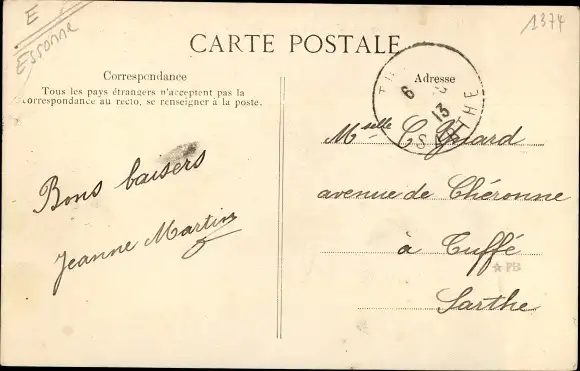 E
Essonne
1374
CARTE POSTALE
Correspondance
Tous les pays étrangers n'acceptent pas la
correspondance au recto, se renseigner à la poste.
Adresse
6
13
SARTHE
Bons baisers
Jeanne Martin
Melle C.
avenue de Chéronne
à Tuffé
★ PB
Sarthe